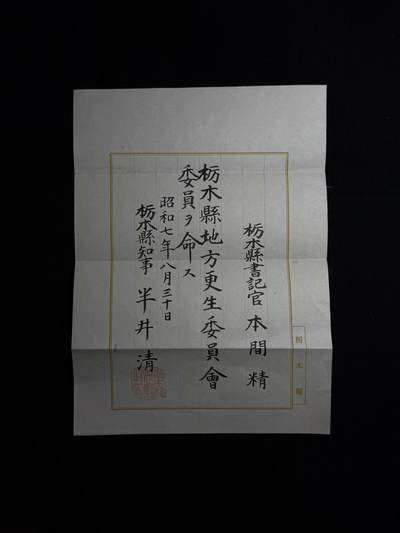 栃木縣書記官 本間精
栃木縣地方更生委員會
委員ヲ命ス
昭和七年八月三十日
栃木縣知事 半井清
栃木縣